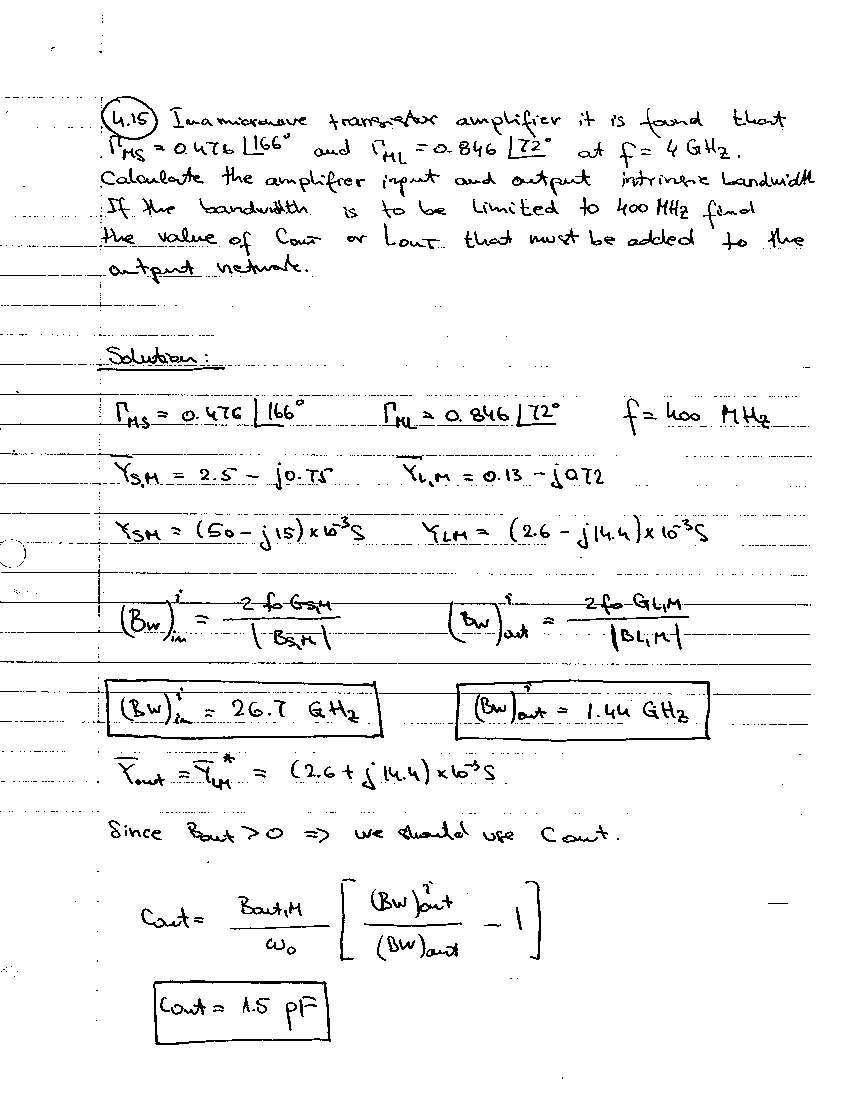 4.15 In a microwave transistor amplifier it is found that
Γ_MS = 0.476 ∠166° and Γ_ML = 0.846 ∠72° at f = 4 GHz.
Calculate the amplifier input and output intrinsic bandwidth
If the bandwidth is to be limited to 400 MHz find
the value of Cout or Lout that must be added to the
output network.
Solution:
Γ_MS = 0.476 ∠166° Γ_ML = 0.846 ∠72° f = 400 MHz
Y̅_S,M = 2.5 - j0.75 Y̅_L,M = 0.13 - j0.72
Y_SM = (50 - j15) x 10⁻³ S Y_LM = (2.6 - j14.4) x 10⁻³ S
(BW)ⁱ_in = 2 fo G_S,M / |B_S,M| (BW)ⁱ_out = 2 fo G_L,M / |B_L,M|
(BW)ⁱ_in = 26.7 GHz (BW)ⁱ_out = 1.44 GHz
Y̅_out = Y̅_LM* = (2.6 + j14.4) x 10⁻³ S
Since Bout > 0 => we should use Cout.
Cout = Bout,M / ω₀ [ (BW)ⁱ_out / (BW)_out - 1 ]
Cout = 1.5 pF